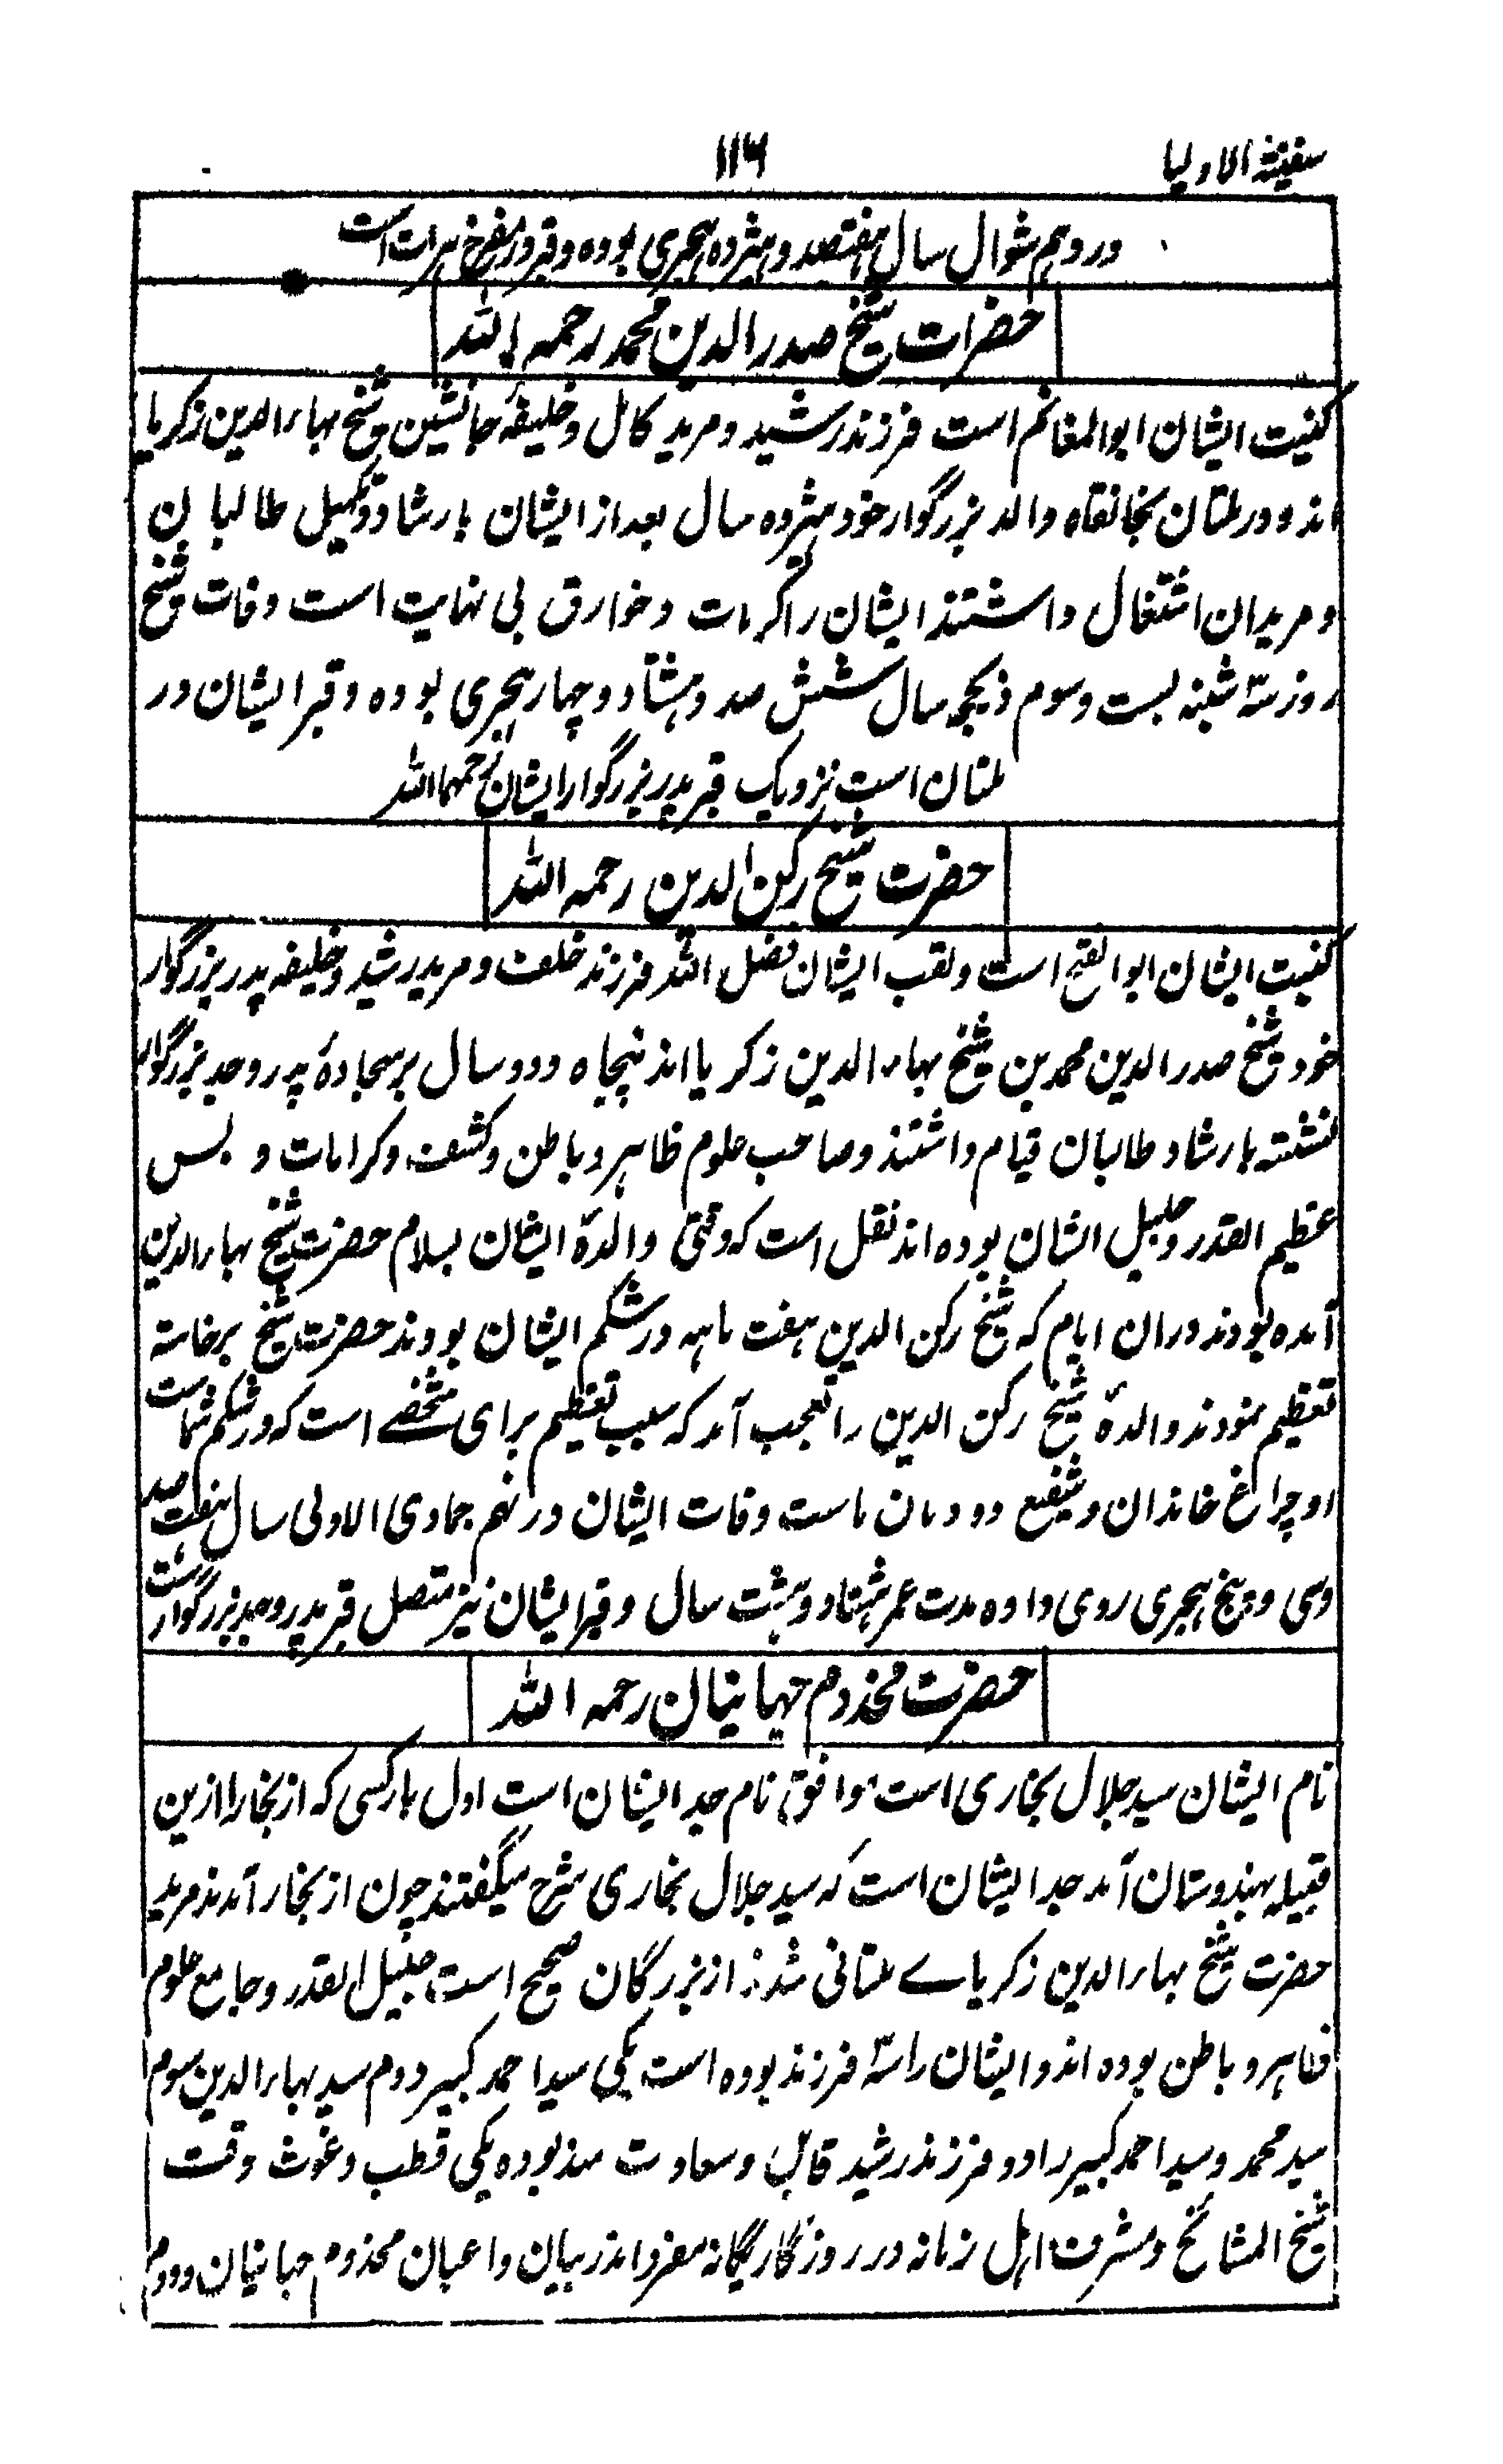 سفینۃ الاولیا
۱۱۶
در دہم شوال سال ہفتصد و ہیژدہ ہجری بودہ و قبر در مفرخ ہرات است
حضرات شیخ صدر الدین محمد رحمہ اللہ
کنیت ایشان ابو المغانم است فرزند رشید و مرید کامل و خلیفۂ جانشین شیخ بہاء الدین زکریا
اند و در ملتان بخانقاہ والد بزرگوار خود ہیژدہ سال بعد از ایشان بارشاد و تکمیل طالبان
و مریدان اشتغال داشتند ایشان را کرامات و خوارق بی نہایت است وفات شیخ
روز سہ شنبہ بست و سوم ذیحجہ سال شش صد و ہشتاد و چہار ہجری بودہ و قبر ایشان در
ملتان است نزدیک قبر پدر بزرگوار ایشان رحمہما اللہ
حضرت شیخ رکن الدین رحمہ اللہ
کنیت ایشان ابو الفتح است و لقب ایشان فضل اللہ فرزند خلف و مرید رشید و خلیفہ پدر بزرگوار
خود شیخ صدر الدین محمد بن شیخ بہاء الدین زکریا اند پنجاہ و دو سال بر سجادۂ پدر و جد بزرگوار
نشستہ بارشاد طالبان قیام داشتند و صاحب علوم ظاہر و باطن و کشف و کرامات و بس
عظیم القدر و جلیل الشان بودہ اند نقل است کہ وقتی والدۂ ایشان بسلام حضرت شیخ بہاء الدین
آمدہ بودند دران ایام کہ شیخ رکن الدین ہفت ماہہ در شکم ایشان بودند حضرت شیخ برخاستہ
تعظیم نمودند والدۂ شیخ رکن الدین را تعجب آمد کہ سبب تعظیم برای شخصے است کہ در شکم شما ست
او چراغ خاندان و شفیع دودمان ماست وفات ایشان در نہم جمادی الاولی سال ہفت صد
وسی و پنج ہجری روی دادہ مدت عمر ہشتاد و ہشت سال و قبر ایشان نیز متصل قبر پدر و جد بزرگوار است
حضرت مخدوم جہانیان رحمہ اللہ
نام ایشان سید جلال بخاری است موافق نام جد ایشان است اول بار کسی کہ از بخارا ازین
قبیلہ بہندوستان آمد جد ایشان است کہ سید جلال بخاری سرخ میگفتند چون از بخارا آمدند مرید
حضرت شیخ بہاء الدین زکریاے ملتانی شدند از بزرگان صحیح است جلیل القدر و جامع علوم
ظاہر و باطن بودہ اند و ایشان را سہ فرزند بودہ است یکی سید احمد کبیر دوم سید بہاء الدین سوم
سید محمد و سید احمد کبیر را دو فرزند رشید قابل و سعادت مند بودہ یکی قطب و غوث وقت
شیخ المشائخ و مشرف اہل زمانہ در روزگار یگانہ مفرد اندر بیان و اعیان مخدوم جہانیان و دوم